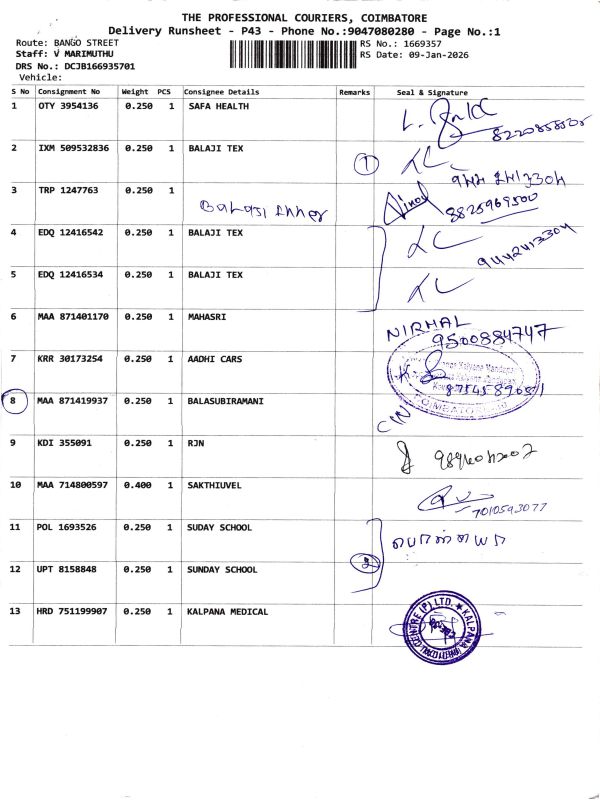 THE PROFESSIONAL COURIERS, COIMBATORE
Delivery Runsheet - P43 - Phone No.:9047080280 - Page No.:1
Route: BANGO STREET
Staff: V MARIMUTHU
DRS No.: DCJB166935701
Vehicle:
RS No.: 1669357
RS Date: 09-Jan-2026
S No Consignment No Weight PCS Consignee Details Remarks Seal & Signature
1 OTY 3954136 0.250 1 SAFA HEALTH
2 IXM 509532836 0.250 1 BALAJI TEX 1
3 TRP 1247763 0.250 1 8825969500
4 EDQ 12416542 0.250 1 BALAJI TEX 9442413304
5 EDQ 12416534 0.250 1 BALAJI TEX
6 MAA 871401170 0.250 1 MAHASRI NIRMAL 9500884747
7 KRR 30173254 0.250 1 AADHI CARS
8 MAA 871419937 0.250 1 BALASUBIRAMANI
9 KDI 355091 0.250 1 RJN
10 MAA 714800597 0.400 1 SAKTHIUVEL 7010593077
11 POL 1693526 0.250 1 SUDAY SCHOOL
12 UPT 8158848 0.250 1 SUNDAY SCHOOL 2
13 HRD 751199907 0.250 1 KALPANA MEDICAL